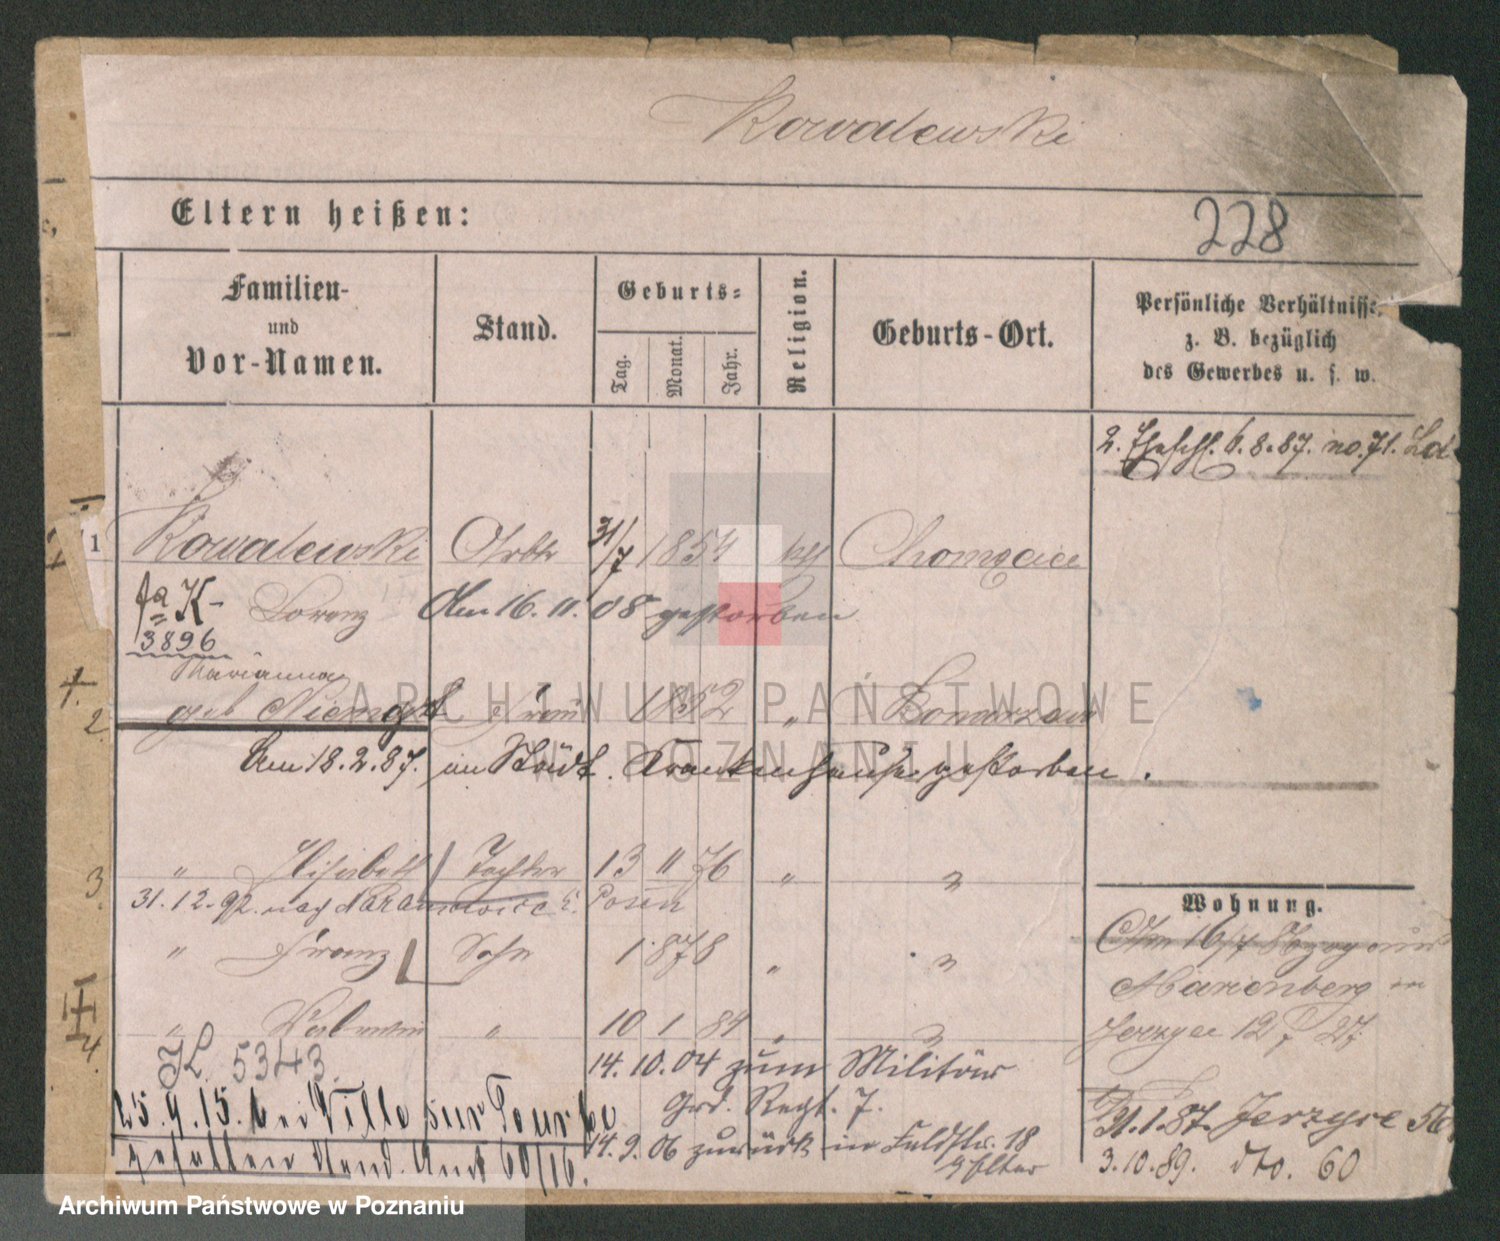 Kowalewski
Eltern heißen:
228
Familien-
und
Vor-Namen.
Stand.
Geburts-
Tag.
Monat.
Jahr.
Religion.
Geburts-Ort.
Persönliche Verhältnisse,
z. B. bezüglich
des Gewerbes u. s. w.
2. Eheschl. 6.8.87. no. 71. Ld
1 Kowalewski Arbtr 31/7 1854 kth
Lorenz Am 16.11.08 gestorben
fa K-
3896
Marianna
2. geb Frau 1852 "
Am 18.2.87. im Städt. Krankenhause gestorben.
3. " Elisabeth Tochter 13 11 76 " "
31.12.92. nach b. Posen
" Franz Sohn 1.878 " "
4. " Valentin " 10 1 84 " "
K. 5343.
14.10.04 zum Militär
Grd. Regt. 7.
25.9.15. bei Ville sur Tourbe
gefallen Stand. Amt 60/16.
14.9.06 zurück in Feldstr. 18
b/ Eltern
Wohnung.
Am 16/7 Abzug aus
Marienberg in
Jerzyce 12/7 27
21.1.87. Jerzyce 56
3.10.89. dto. 60
ARCHIWUM PAŃSTWOWE
W POZNANIU
Archiwum Państwowe w Poznaniu